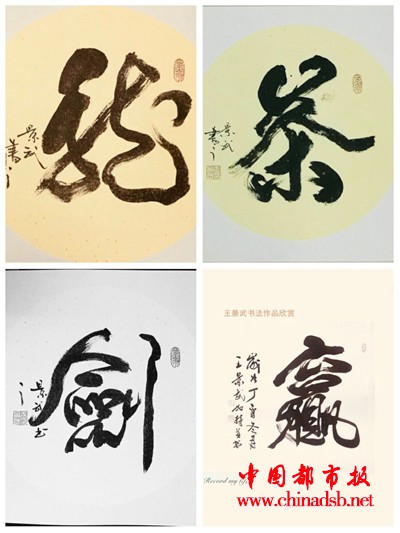 龙
景武
书
茶
景武
书
剑
景武书
王景武书法作品欣赏
赢
岁次丁酉冬月
王景武
Record my life
中国都市报
www.chinadsb.net